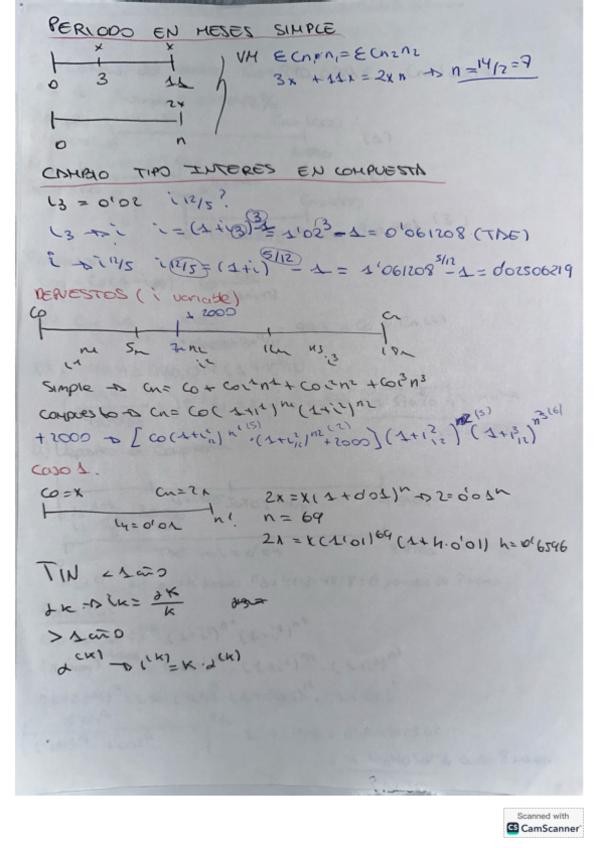 PERIODO EN MESES SIMPLE
x x
0 3 11
2x
0 n
VM ΣCn₁n₁ = ΣCn₂n₂
3x + 11x = 2x n → n = 14/2 = 7
CAMBIO TIPO INTERES EN COMPUESTA
i₃ = 0'02 i 12/5?
i₃ → i i = (1+i₃)³ - 1 = 1'02³ - 1 = 0'061208 (TAE)
i → i 12/5 i 12/5 = (1+i)^5/12 - 1 = 1'061208^5/12 - 1 = 0'02506219
DEPUESTOS (i variable)
+ 2000
Co Cn
n₁ 5m 7m n₂ 12m n₃ 18m
i¹ i² i³
Simple → Cn = Co + Co i¹n¹ + Co i²n² + Co i³n³
compuesto → Cn = Co (1+i¹)^n¹ (1+i²)^n²
+2000 → [Co (1+i¹₁₂)^n¹(5) · (1+i²₁₂)^n2(2) + 2000] (1+i²₁₂)^n2(5) (1+i³₁₂)^n3(6)
Caso 1.
Co = x Cn = 2x
i₄ = 0'01 n?
2x = x (1 + 0'01)^n → 2 = 0'01^n
n = 69
2x = x (1'01)^69 (1 + h · 0'01) h = 0'6596
TIN < 1 año
jk → ik = jk/k
> 1 año
j^(k) → i^(k) = k · j^(k)
Scanned with
CS CamScanner